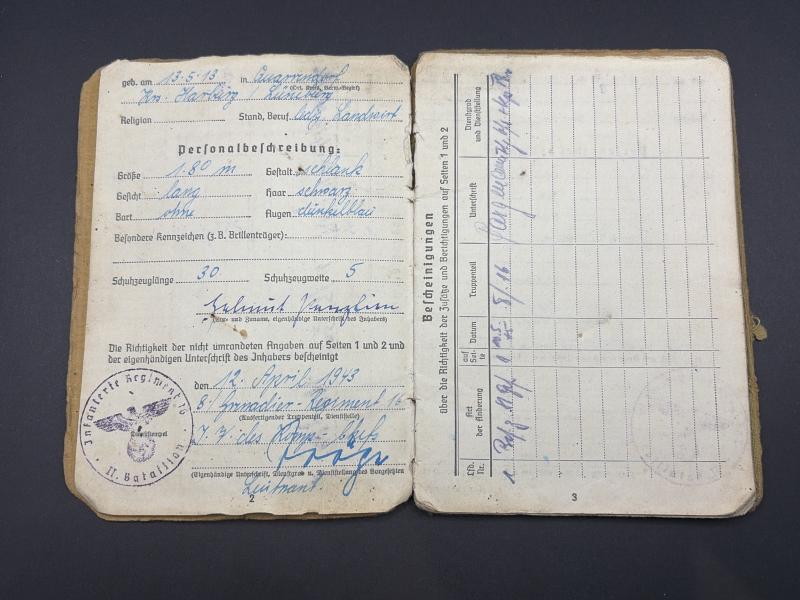 geb. am 13.5.13 in Quarrendorf
(Ort, Kreis, Verw.-Bezirk)
Krs. Harburg / Lüneburg
Religion Stand, Beruf Landwirt
Personalbeschreibung:
Größe 1.80 m Gestalt schlank
Gesicht lang Haar schwarz
Bart ohne Augen dunkelblau
Besondere Kennzeichen (z. B. Brillenträger):
Schuhzeuglänge 30 Schuhzeugweite 5
Helmut
(Vor- und Zuname, eigenhändige Unterschrift des Inhabers)
Die Richtigkeit der nicht umrandeten Angaben auf Seiten 1 und 2 und der eigenhändigen Unterschrift des Inhabers bescheinigt
den 12. April 1943
8./ Grenadier-Regiment 16
(Ausfertigender Truppenteil, Dienststelle)
J. V. des Komp.-Chefs
(Eigenhändige Unterschrift, Dienstgrad u. Dienststellung des Vorgesetzten)
Leutnant.
2
Infanterie Regiment 16
Dienststempel
II. Bataillon
Bescheinigungen
über die Richtigkeit der Zusätze und Berichtigungen auf Seiten 1 und 2
Lfd. Nr.
Art der Änderung
auf Seite
Datum
Truppenteil
Unterschrift
Dienstgrad und Dienststellung
1
8/16
3